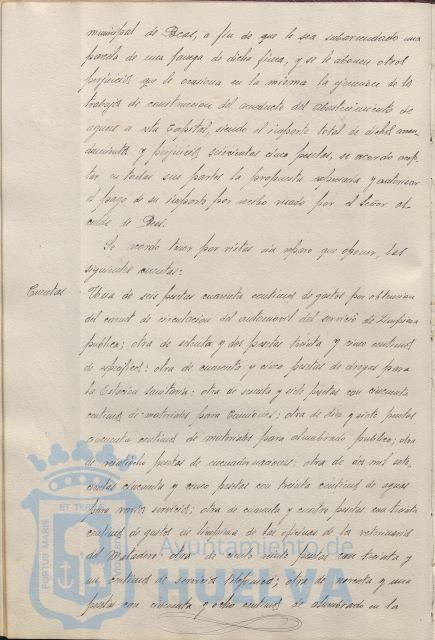 municipal de Beas, a fin de que le sea subarrendado una
parcela de una fanega de dicha finca, y se le abonen otros
perjuicios que le ocasiona en la misma la ejecucion de los
trabajos de construccion del acueducto del abastecimiento de
aguas a esta Capital, siendo el importe total de dichos arren-
damientos y perjuicios cinco pesetas, se acordó acep-
tar en todas sus partes la propuesta y autorizar
el pago de su importe por recibo visado por el Señor al-
calde de Beas.
Se acordó tener por vistas sin reparo que oponer, las
siguientes cuentas:
Cuentas
Una de seis pesetas cuarenta centimos de gastos por obtencion
del carnet de circulacion del automovil del servicio de Limpieza
publica; otra de setenta y dos pesetas treinta y cinco centimos
de especificos; otra de cuarenta y cinco pesetas de drogas para
la Estacion Sanitaria; otra de sesenta y siete pesetas con cincuenta
centimos de materiales para ; otra de diez y siete pesetas
cincuenta centimos de materiales para alumbrado publico; otra
de veintiocho pesetas de encuadernaciones; otra de dos mil sete-
cientas cincuenta y cinco pesetas con treinta centimos de aguas
para varios servicios; otra de cuarenta y cuatro pesetas con treinta
centimos de gastos de limpieza de las oficinas de la veterinaria
del Matadero otra de ciento veinte pesetas con treinta y
un centimos de servicio telefonico; otra de noventa y una
pesetas con cincuenta y ocho centimos de alumbrado en la
PORTUS MARIS
ET TERRAE
CUSTODIA
Ayuntamiento de
HUELVA